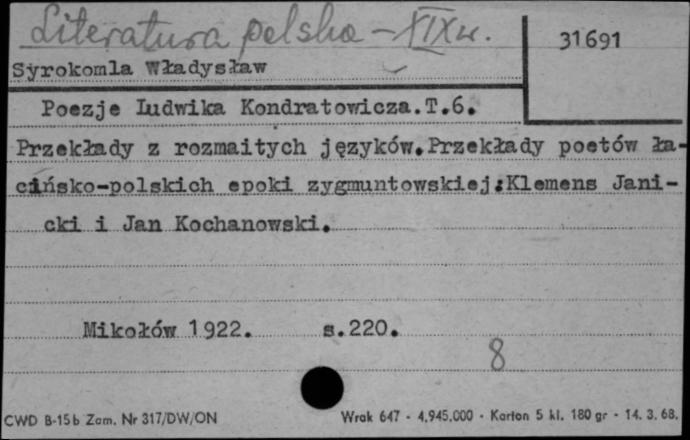 Literatura polska - XIX w.
31691
Syrokomla Władysław
Poezje Ludwika Kondratowicza.T.6.
Przekłady z rozmaitych języków.Przekłady poetów ła-
cińsko-polskich epoki zygmuntowskiej:Klemens Jani-
cki i Jan Kochanowski.
Mikołów 1922. s.220.
8
CWD B-15b Zam. Nr 317/DW/ON Wrak 647 - 4.945.000 - Karton 5 kl. 180 gr - 14. 3. 68.